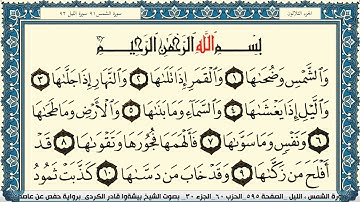 الجزء الثلاثون
سورة الشمس ٩١ سورة الليل ٩٢
بِسْمِ اللَّهِ الرَّحْمَٰنِ الرَّحِيمِ
وَالشَّمْسِ وَضُحَىٰهَا ١ وَالْقَمَرِ إِذَا تَلَىٰهَا ٢ وَالنَّهَارِ إِذَا جَلَّىٰهَا ٣
وَاللَّيْلِ إِذَا يَغْشَىٰهَا ٤ وَالسَّمَاءِ وَمَا بَنَىٰهَا ٥ وَالْأَرْضِ وَمَا طَحَىٰهَا
٦ وَنَفْسٍ وَمَا سَوَّىٰهَا ٧ فَأَلْهَمَهَا فُجُورَهَا وَتَقْوَىٰهَا ٨ قَدْ
أَفْلَحَ مَن زَكَّىٰهَا ٩ وَقَدْ خَابَ مَن دَسَّىٰهَا ١٠ كَذَّبَتْ ثَمُودُ
ة الشمس ، الليل . الصفحة ٥٩٥ . الحزب ٦٠ . الجزء ٣٠ . بصوت الشيخ بيشةوا قادر الكردى . برواية حفص عن عاصم